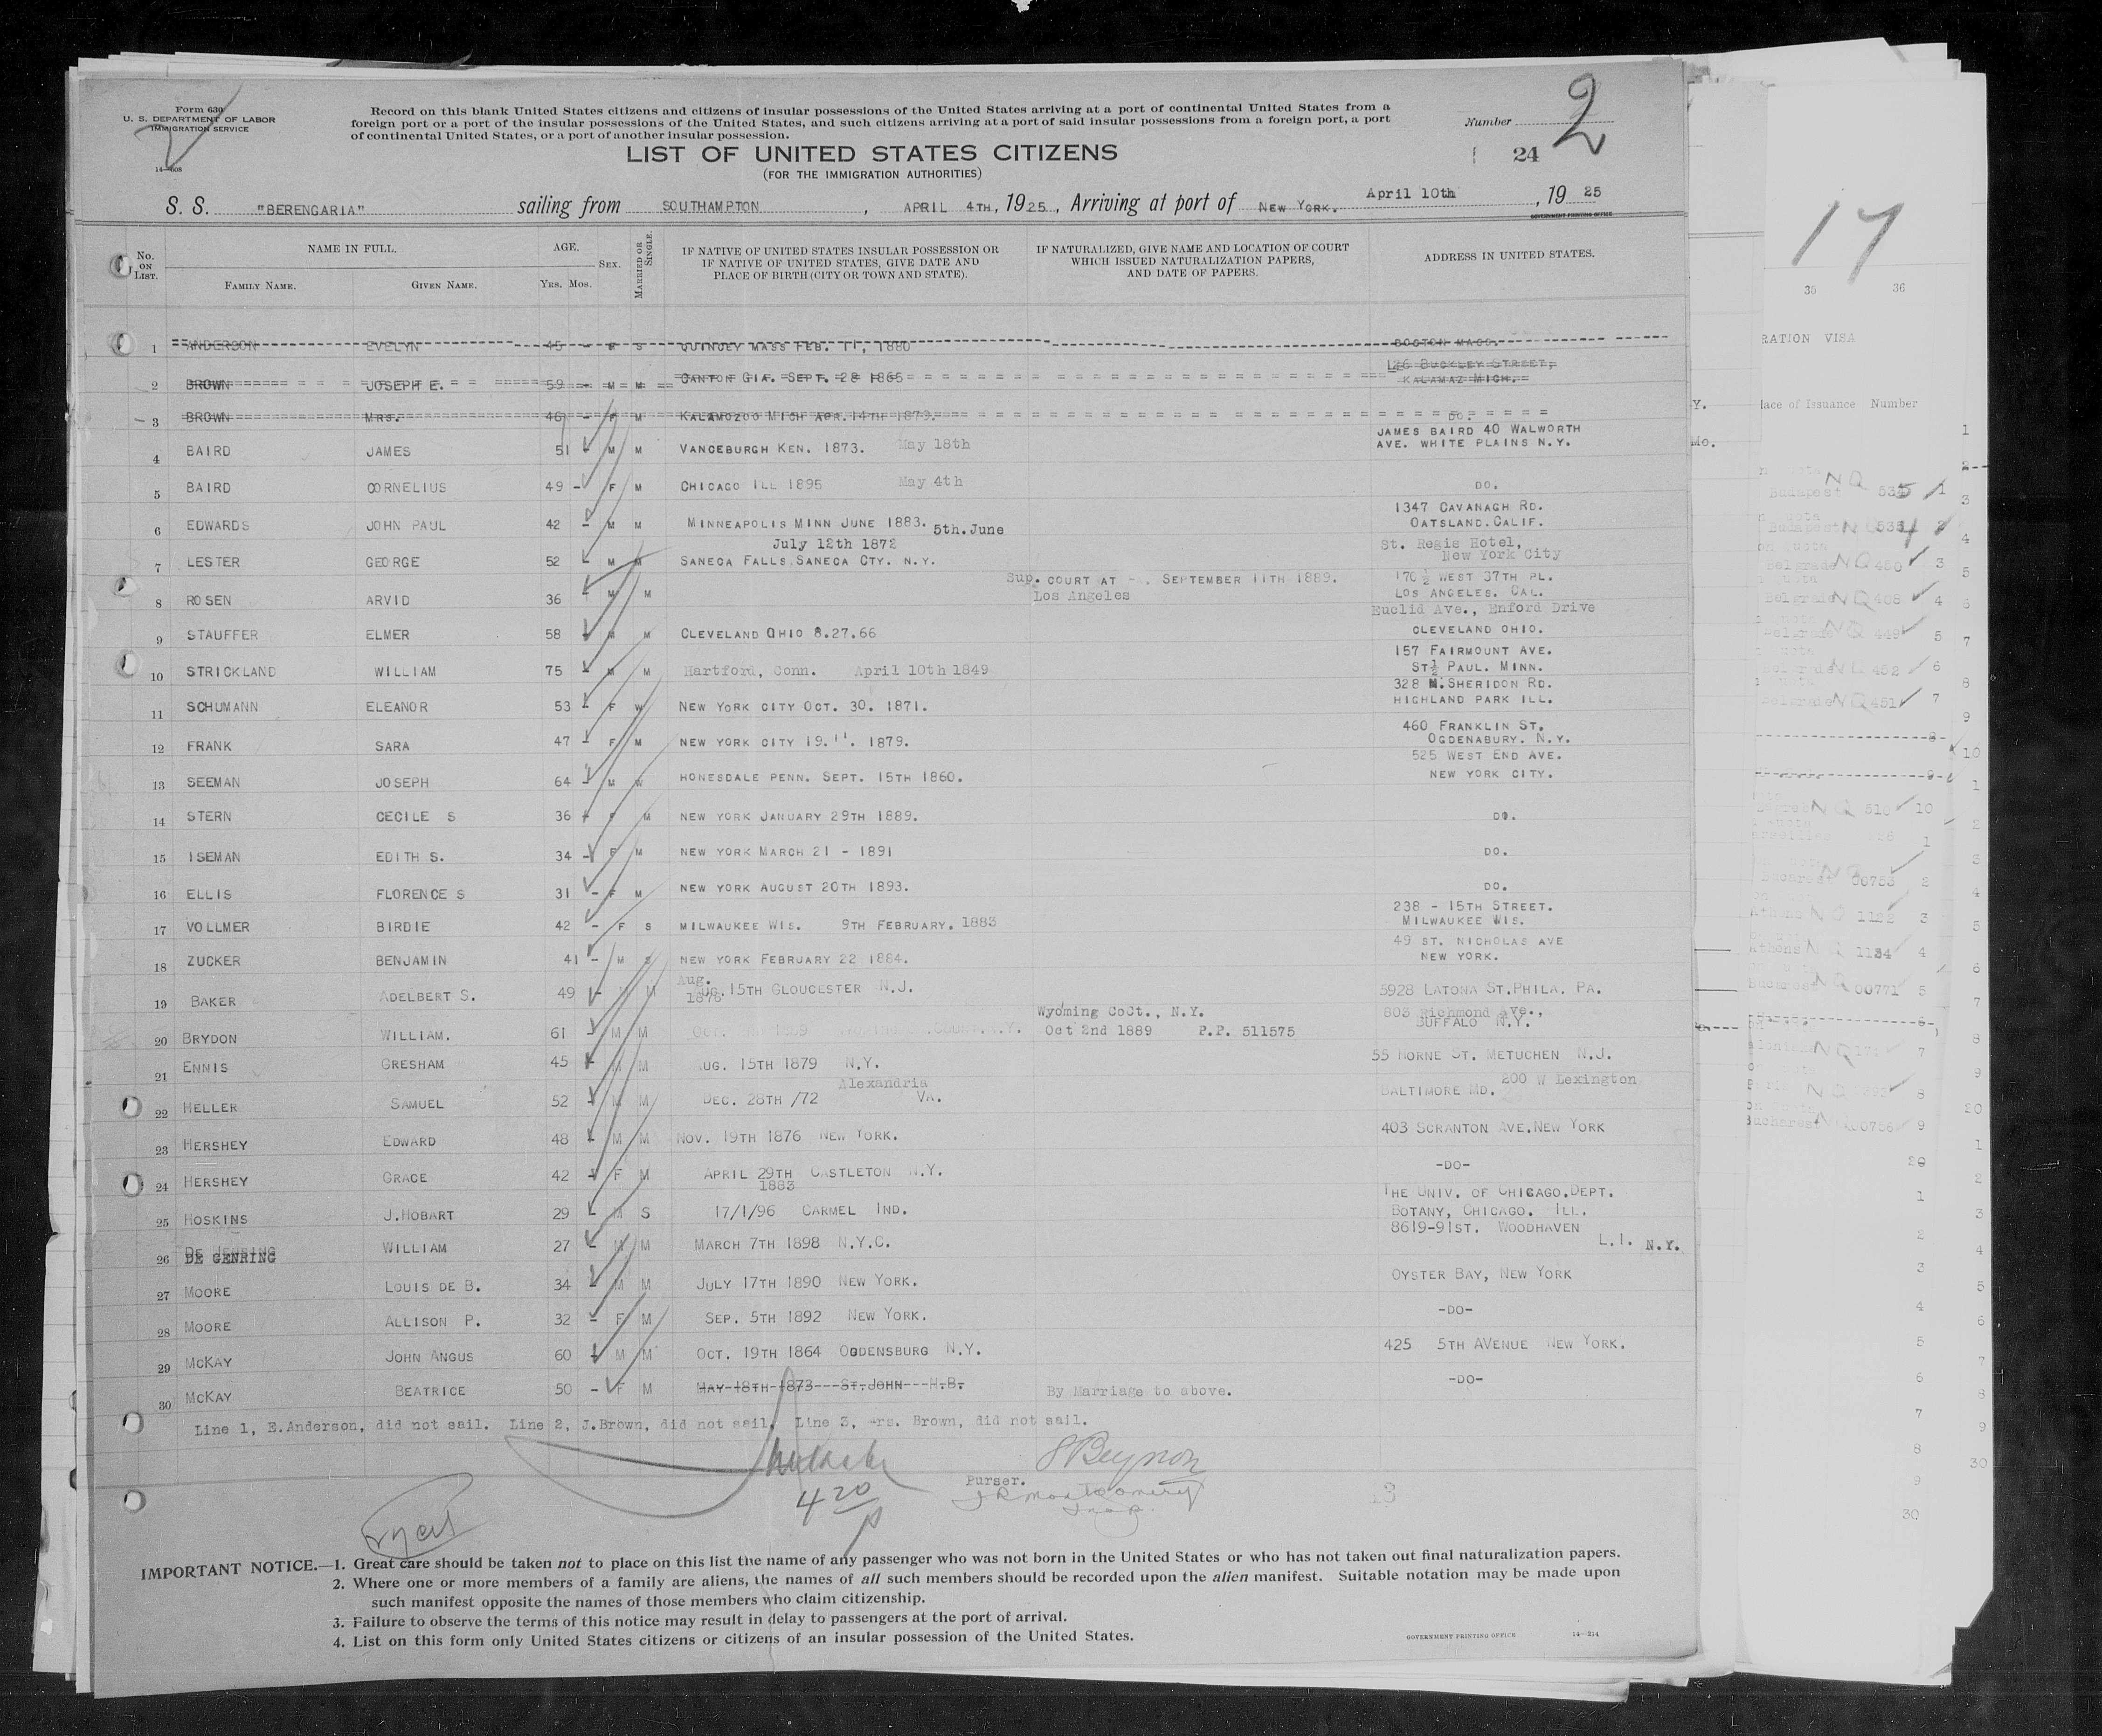 Form 630
U. S. DEPARTMENT OF LABOR
IMMIGRATION SERVICE
14—608
Record on this blank United States citizens and citizens of insular possessions of the United States arriving at a port of continental United States from a
foreign port or a port of the insular possessions of the United States, and such citizens arriving at a port of said insular possessions from a foreign port, a port
of continental United States, or a port of another insular possession.
Number 2
24
LIST OF UNITED STATES CITIZENS
(FOR THE IMMIGRATION AUTHORITIES)
S. S. "BERENGARIA" sailing from SOUTHAMPTON, APRIL 4TH, 1925, Arriving at port of NEW YORK. April 10th, 19 25
GOVERNMENT PRINTING OFFICE
No. ON LIST. NAME IN FULL. FAMILY NAME. GIVEN NAME. AGE. YRS. MOS. SEX. MARRIED OR SINGLE. IF NATIVE OF UNITED STATES INSULAR POSSESSION OR IF NATIVE OF UNITED STATES, GIVE DATE AND PLACE OF BIRTH (CITY OR TOWN AND STATE). IF NATURALIZED, GIVE NAME AND LOCATION OF COURT WHICH ISSUED NATURALIZATION PAPERS, AND DATE OF PAPERS. ADDRESS IN UNITED STATES.
1 ANDERSON EVELYN 45 - F S QUINCEY MASS FEB. 11, 1880 BOSTON MASS.
2 BROWN JOSEPH E. 59 M M CANTON GIA. SEPT. 28 1865 126 BUCKLEY STREET, KALAMAZ MICH.
3 BROWN MRS. 46 - F M KALAMOZOO MICH APR. 14TH 1879. DO.
4 BAIRD JAMES 51 - M M VANCEBURGH KEN. 1873. May 18th JAMES BAIRD 40 WALWORTH AVE. WHITE PLAINS N.Y.
5 BAIRD CORNELIUS 49 - F M CHICAGO ILL 1895 May 4th DO.
6 EDWARDS JOHN PAUL 42 - M M MINNEAPOLIS MINN JUNE 1883. 5th.June 1347 CAVANAGH RD. OATSLAND.CALIF.
7 LESTER GEORGE 52 - M M July 12th 1872 SANECA FALLS.SANECA CTY. N.Y. St. Regis Hotel, New York City
8 ROSEN ARVID 36 - M M Sup. COURT AT - . SEPTEMBER 11TH 1889. Los Angeles 170 ½ WEST 37TH PL. LOS ANGELES. CAL.
9 STAUFFER ELMER 58 - M M CLEVELAND OHIO 8.27.66 Euclid Ave., Enford Drive CLEVELAND OHIO.
10 STRICKLAND WILLIAM 75 - M M Hartford, Conn. April 10th 1849 157 FAIRMOUNT AVE. ST½ PAUL. MINN.
11 SCHUMANN ELEANOR 53 - F W NEW YORK CITY OCT. 30. 1871. 328 N. SHERIDON RD. HIGHLAND PARK ILL.
12 FRANK SARA 47 - F M NEW YORK CITY 19. 11. 1879. 460 FRANKLIN ST. OGDENABURY. N.Y.
13 SEEMAN JOSEPH 64 - M W HONESDALE PENN. SEPT. 15TH 1860. 525 WEST END AVE. NEW YORK CITY.
14 STERN CECILE S 36 - F M NEW YORK JANUARY 29TH 1889. DO.
15 ISEMAN EDITH S. 34 - F M NEW YORK MARCH 21 - 1891 DO.
16 ELLIS FLORENCE S 31 - F M NEW YORK AUGUST 20TH 1893. DO.
17 VOLLMER BIRDIE 42 - F S MILWAUKEE WIS. 9TH FEBRUARY. 1883 238 - 15TH STREET. MILWAUKEE WIS.
18 ZUCKER BENJAMIN 41 - M S NEW YORK FEBRUARY 22 1884. 49 ST. NICHOLAS AVE NEW YORK.
19 BAKER ADELBERT S. 49 - M M Aug. 15TH GLOUCESTER N.J. 1876 5928 LATONA ST.PHILA. PA.
20 BRYDON WILLIAM. 61 M M Oct. Wyoming CoCt., N.Y. Oct 2nd 1889 P.P. 511575 803 Richmond Ave., BUFFALO N.Y.
21 ENNIS GRESHAM 45 M M AUG. 15TH 1879 N.Y. 55 HORNE ST. METUCHEN N.J.
22 HELLER SAMUEL 52 M M DEC. 28TH /72 Alexandria VA. BALTIMORE MD. 200 W Lexington
23 HERSHEY EDWARD 48 M M NOV. 19TH 1876 NEW YORK. 403 SCRANTON AVE,NEW YORK
24 HERSHEY GRACE 42 F M APRIL 29TH CASTLETON N.Y. 1883 -DO-
25 HOSKINS J.HOBART 29 - M S 17/1/96 CARMEL IND. THE UNIV. OF CHICAGO.DEPT. BOTANY, CHICAGO. ILL.
26 DE GENRING WILLIAM 27 - M M MARCH 7TH 1898 N.Y.C. 8619-91ST. WOODHAVEN L.I. N.Y.
27 MOORE LOUIS DE B. 34 - M M JULY 17TH 1890 NEW YORK. OYSTER BAY, NEW YORK
28 MOORE ALLISON P. 32 - F M SEP. 5TH 1892 NEW YORK. -DO-
29 MCKAY JOHN ANGUS 60 M M OCT. 19TH 1864 OGDENSBURG N.Y. 425 5TH AVENUE NEW YORK.
30 MCKAY BEATRICE 50 - F M MAY 18TH 1873 ST.JOHN N.B. By Marriage to above. -DO-
Line 1, E.Anderson, did not sail. Line 2, J.Brown, did not sail. Line 3, Mrs. Brown, did not sail.
S Beynon
Purser.
J R Montgomery
Insp.
4 20 p
13
IMPORTANT NOTICE.—1. Great care should be taken not to place on this list the name of any passenger who was not born in the United States or who has not taken out final naturalization papers.
2. Where one or more members of a family are aliens, the names of all such members should be recorded upon the alien manifest. Suitable notation may be made upon
such manifest opposite the names of those members who claim citizenship.
3. Failure to observe the terms of this notice may result in delay to passengers at the port of arrival.
4. List on this form only United States citizens or citizens of an insular possession of the United States.
GOVERNMENT PRINTING OFFICE 14—214
17
35 36
RATION VISA
lace of Issuance Number